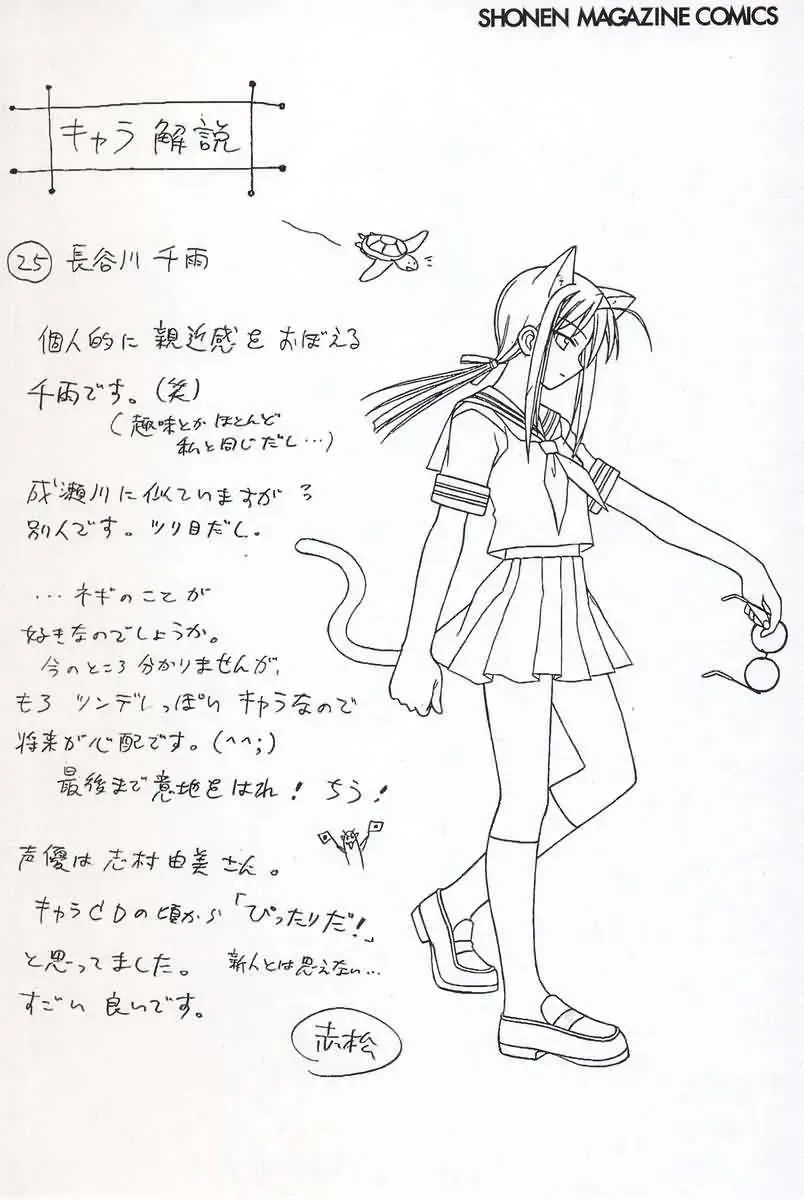 SHONEN MAGAZINE COMICS
キャラ 解説
㉕ 長谷川 千雨
個人的に 親近感を おぼえる
千雨です。(笑)
(趣味とか ほとんど
私と同じだし…)
成瀬川に 似ていますが、
別人です。ツリ目だし。
…ネギのことが
好きなのでしょうか。
今のところ 分かりませんが、
もろ ツンデレっぽい キャラなので
将来が 心配です。(^^;)
最後まで 意地をはれ! ちう!
声優は 志村 由美 さん。
キャラCDの頃から 「ぴったりだ!」
と思ってました。 新人とは思えない…
すごい 良いです。
赤松